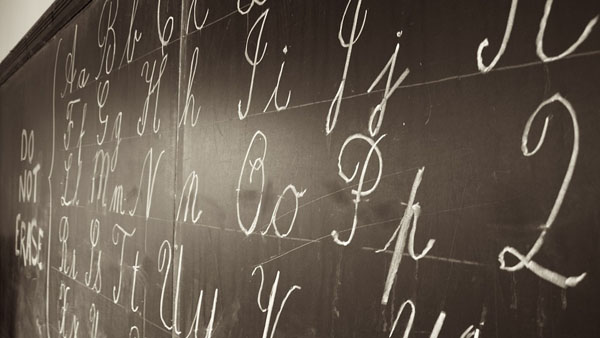 DO
NOT
ERASE
Aa Bb C
Ff Gg Hh Ii Jj
Ll Mm Nn Oo Pp Q
Rr Ss Tt Uu